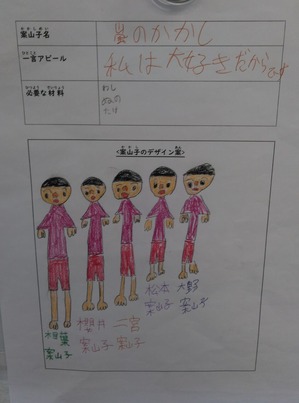 かかしめい
案山子名
嵐のかかし
ひとこと
一言アピール
私は大好きだからです
ひつよう ざいりょう
必要な材料
わし
ぬの
たけ
<案山子のデザイン案>
松本 大野
案山子 案山子
櫻井 二宮
案山子 案山子
相葉
案山子